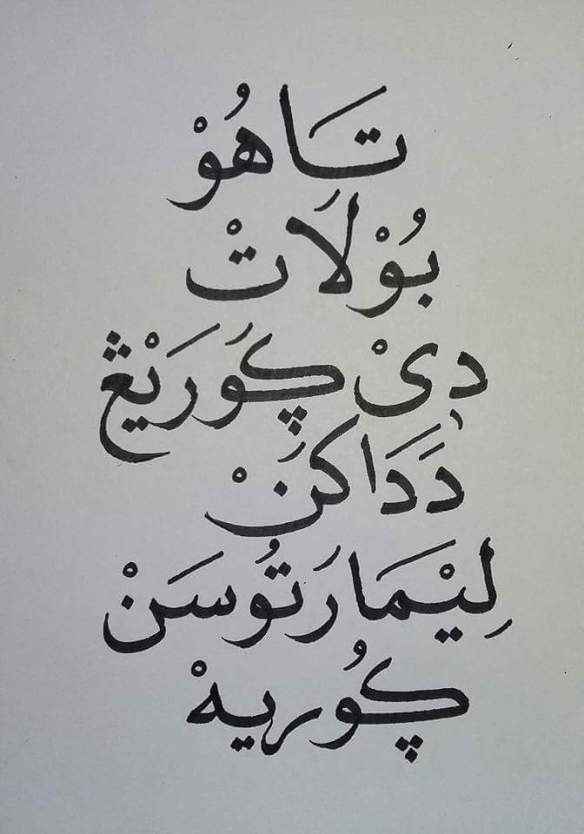 تَاهُوْ
بُوْلَاتْ
دِىْ ڮَورَيْڠ
دَدَاكَنْ
لِيْمَارَتُوسَنْ
ڮُوريهْ